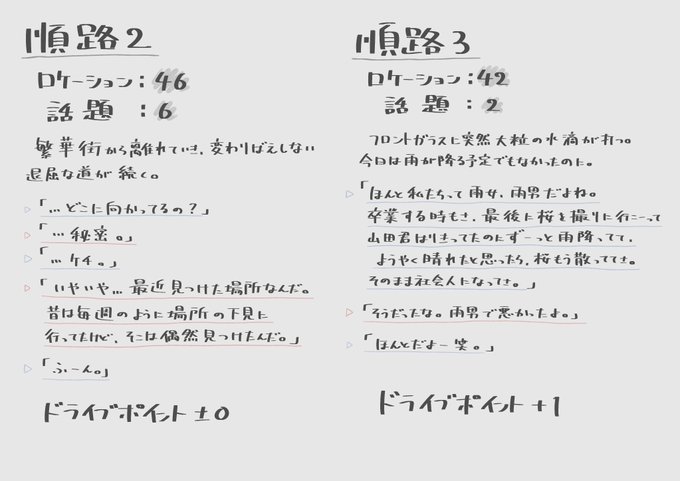 順路2
ロケーション：46
話題：6
繁華街から離れていき、変わりばえしない
退屈な道が続く。
「…どこに向かってるの？」
「…秘密。」
「…ケチ。」
「いやいや…最近見つけた場所なんだ。
昔は毎週のように場所の下見に
行ってたけど、そこは偶然見つけたんだ。」
「ふーん。」
ドライブポイント±0
順路3
ロケーション：42
話題：2
フロントガラスに突然大粒の水滴が打つ。
今日は雨が降る予定でもなかったのに。
「ほんと私たちって雨女、雨男だよね。
卒業する時もさ、最後に桜を撮りに行こーって
山田君はりきってたのにずーっと雨降ってて、
ようやく晴れたと思ったら、桜もう散っててさ。
そのまま社会人になってさ。」
「そうだったな。雨男で悪かったよ。」
「ほんとだよー笑。」
ドライブポイント+1